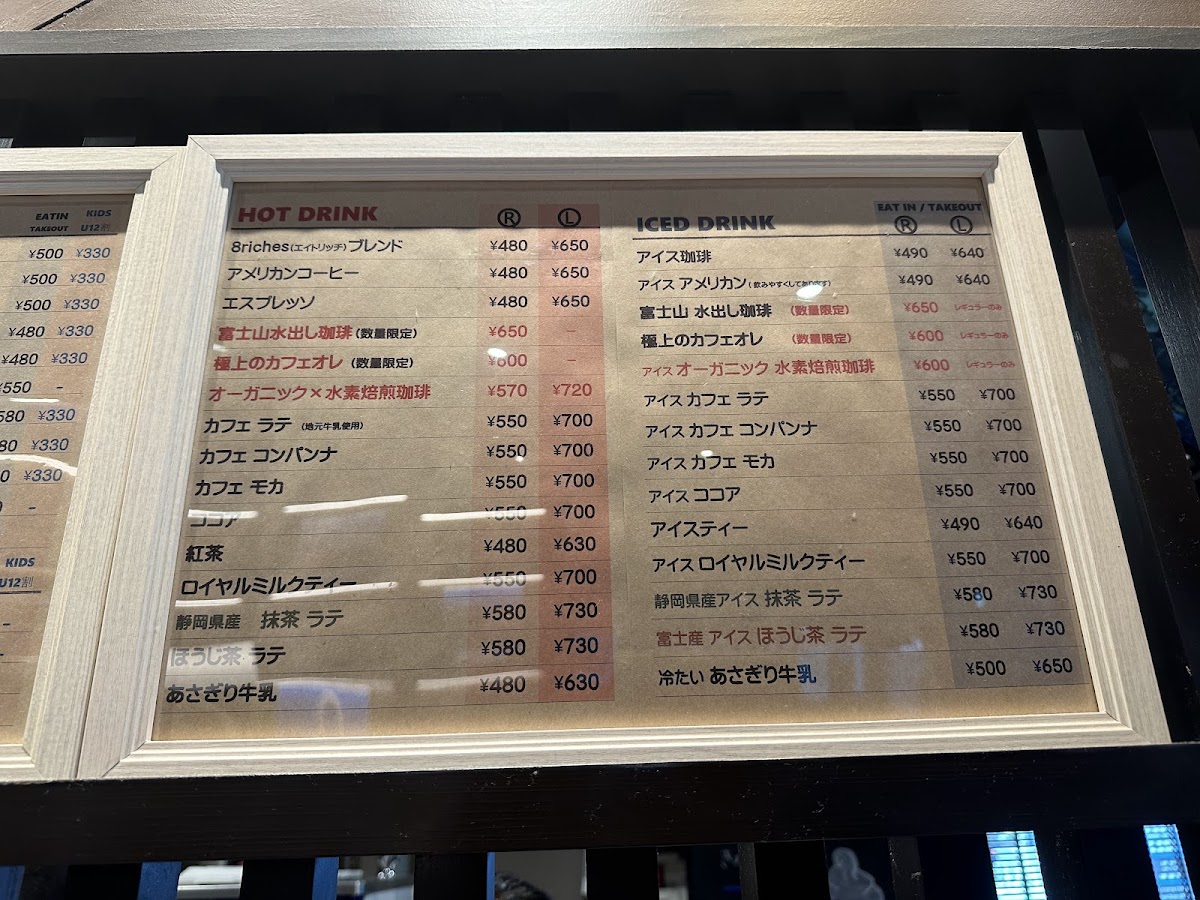 EATIN KIDS
TAKEOUT U12割
¥500 ¥330
¥500 ¥330
¥500 ¥330
¥480 ¥330
¥480 ¥330
¥550 -
580 ¥330
80 ¥330
0 ¥330
-
KIDS
U12割
-
-
HOT DRINK Ⓡ Ⓛ
8riches(エイトリッチ)ブレンド ¥480 ¥650
アメリカンコーヒー ¥480 ¥650
エスプレッソ ¥480 ¥650
富士山水出し珈琲(数量限定) ¥650 -
極上のカフェオレ (数量限定) ¥600 -
オーガニック×水素焙煎珈琲 ¥570 ¥720
カフェ ラテ (地元牛乳使用) ¥550 ¥700
カフェ コンパンナ ¥550 ¥700
カフェ モカ ¥550 ¥700
ココア ¥550 ¥700
紅茶 ¥480 ¥630
ロイヤルミルクティー ¥550 ¥700
静岡県産 抹茶 ラテ ¥580 ¥730
ほうじ茶 ラテ ¥580 ¥730
あさぎり牛乳 ¥480 ¥630
EAT IN / TAKEOUT
ICED DRINK Ⓡ Ⓛ
アイス珈琲 ¥490 ¥640
アイス アメリカン(飲みやすくしてあります) ¥490 ¥640
富士山 水出し珈琲 (数量限定) ¥650 レギュラーのみ
極上のカフェオレ (数量限定) ¥600 レギュラーのみ
アイス オーガニック 水素焙煎珈琲 ¥600 レギュラーのみ
アイス カフェ ラテ ¥550 ¥700
アイス カフェ コンパンナ ¥550 ¥700
アイス カフェ モカ ¥550 ¥700
アイス ココア ¥550 ¥700
アイスティー ¥490 ¥640
アイス ロイヤルミルクティー ¥550 ¥700
静岡県産アイス 抹茶 ラテ ¥580 ¥730
富士産 アイス ほうじ茶 ラテ ¥580 ¥730
冷たい あさぎり牛乳 ¥500 ¥650